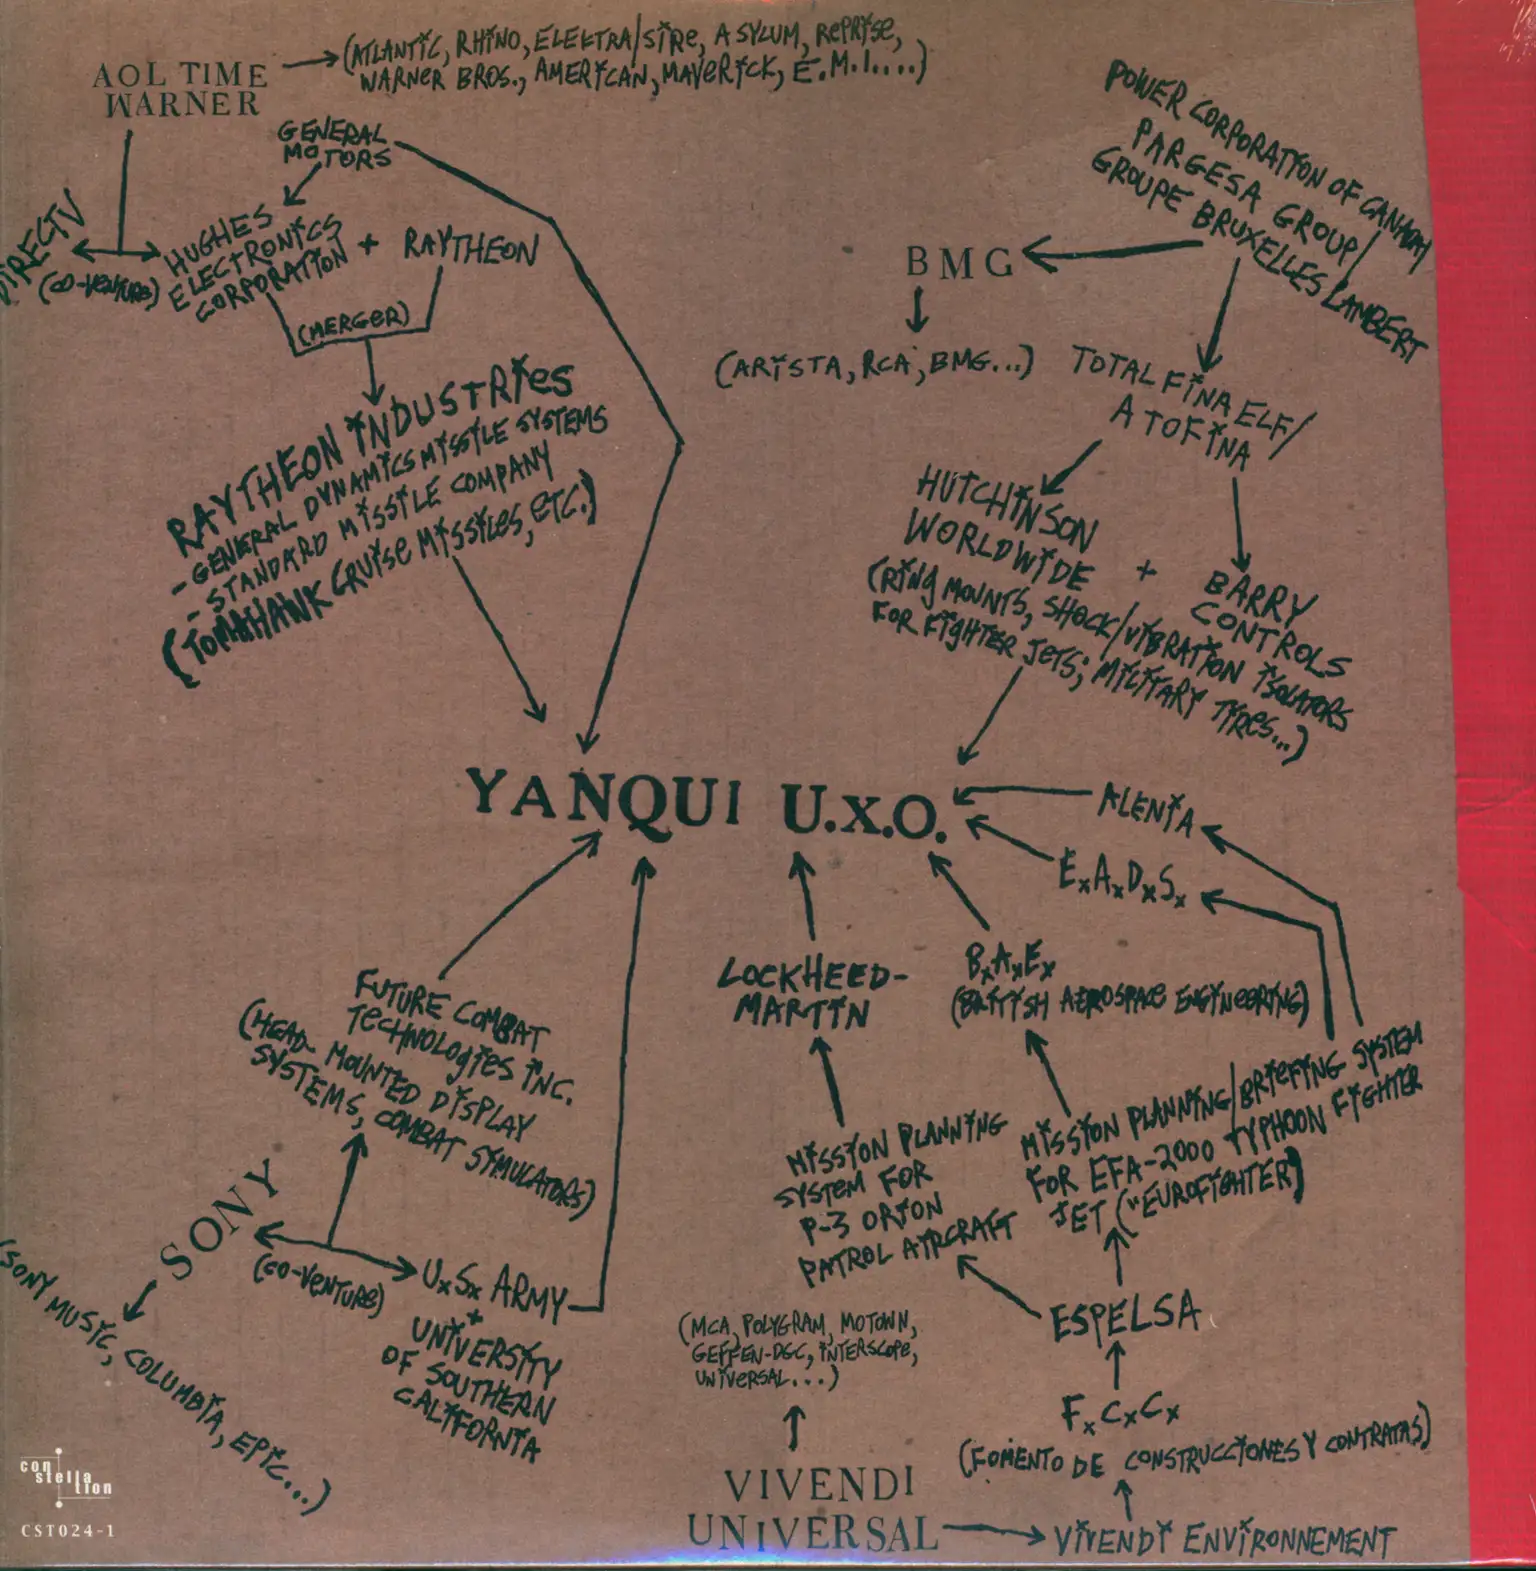 AOL TIME
WARNER
(ATLANTIC, RHINO, ELEKTRA/SIRE, ASYLUM, REPRISE,
WARNER BROS., AMERICAN, MAVERICK, E.M.I....)
GENERAL
MOTORS
DIRECTV
(CO-VENTURE)
HUGHES
ELECTRONICS
CORPORATION
+
RAYTHEON
(MERGER)
RAYTHEON INDUSTRIES
- GENERAL DYNAMICS MISSILE SYSTEMS
- STANDARD MISSILE COMPANY
(TOMAHAWK CRUISE MISSILES, ETC.)
POWER CORPORATION OF CANADA/
PARGESA GROUP/
GROUPE BRUXELLES LAMBERT
BMG
(ARISTA, RCA, BMG...)
TOTAL FINA ELF/
ATOFINA
HUTCHINSON
WORLDWIDE
+
BARRY
CONTROLS
(RING MOUNTS, SHOCK/VIBRATION ISOLATORS
FOR FIGHTER JETS; MILITARY TIRES...)
YANQUI U.X.O.
ALENIA
E.A.D.S.
B.A.E.
(BRITISH AEROSPACE ENGINEERING)
LOCKHEED-
MARTIN
FUTURE COMBAT
TECHNOLOGIES INC.
(HEAD-MOUNTED DISPLAY
SYSTEMS, COMBAT SIMULATORS)
SONY
(CO-VENTURE)
U.S. ARMY
+
UNIVERSITY
OF SOUTHERN
CALIFORNIA
(SONY MUSIC, COLUMBIA, EPIC...)
MISSION PLANNING
SYSTEM FOR
P-3 ORION
PATROL AIRCRAFT
MISSION PLANNING/BRIEFING SYSTEM
FOR EFA-2000 TYPHOON FIGHTER
JET ("EUROFIGHTER)
ESPELSA
(MCA, POLYGRAM, MOTOWN,
GEFFEN-DGC, INTERSCOPE,
UNIVERSAL...)
F.C.C.
(FOMENTO DE CONSTRUCCIONES Y CONTRATAS)
VIVENDI
UNIVERSAL
VIVENDI ENVIRONNEMENT
con
stella
tion
CST024-1